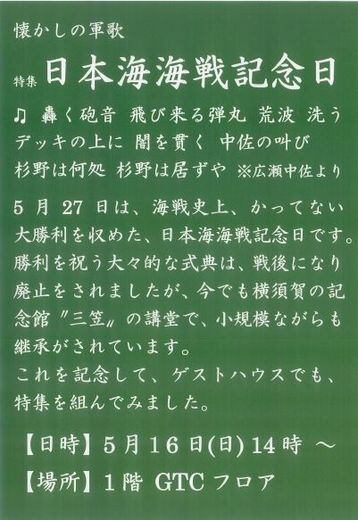 懐かしの軍歌
特集 日本海海戦記念日
♫ 轟く砲音 飛び来る弾丸 荒波 洗う
デッキの上に 闇を貫く 中佐の叫び
杉野は何処 杉野は居ずや ※広瀬中佐より
5月27日は、海戦史上、かってない
大勝利を収めた、日本海海戦記念日です。
勝利を祝う大々的な式典は、戦後になり
廃止をされましたが、今でも横須賀の記
念館〝三笠〟の講堂で、小規模ながらも
継承がされています。
これを記念して、ゲストハウスでも、
特集を組んでみました。
【日時】5月16日(日)14時 ～
【場所】1階 GTCフロア